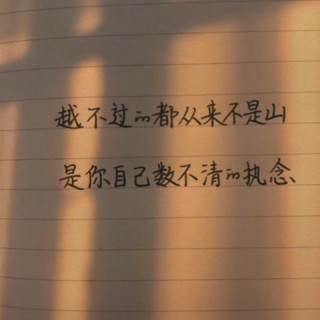 越不过的都从来不是山
是你自己数不清的执念、